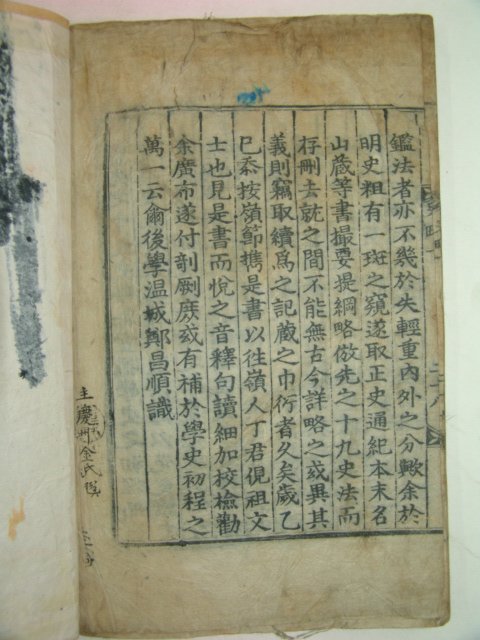 鑑法者亦不幾於失輕重內外之分歟余於
明史粗有一斑之窺遂取正史通紀本末名
山藏等書撮要提綱略倣先之十九史法而
存刪去就之間不能無古今詳略之或異其
義則竊取續爲之記藏之巾衍者久矣歲乙
巳忝按嶺節携是書以往嶺人丁君俔祖文
士也見是書而悅之音釋句讀細加校檢勸
余廣布遂付剞劂庶或有補於學史初程之
萬一云爾後學溫城鄭昌順識
主慶州金氏